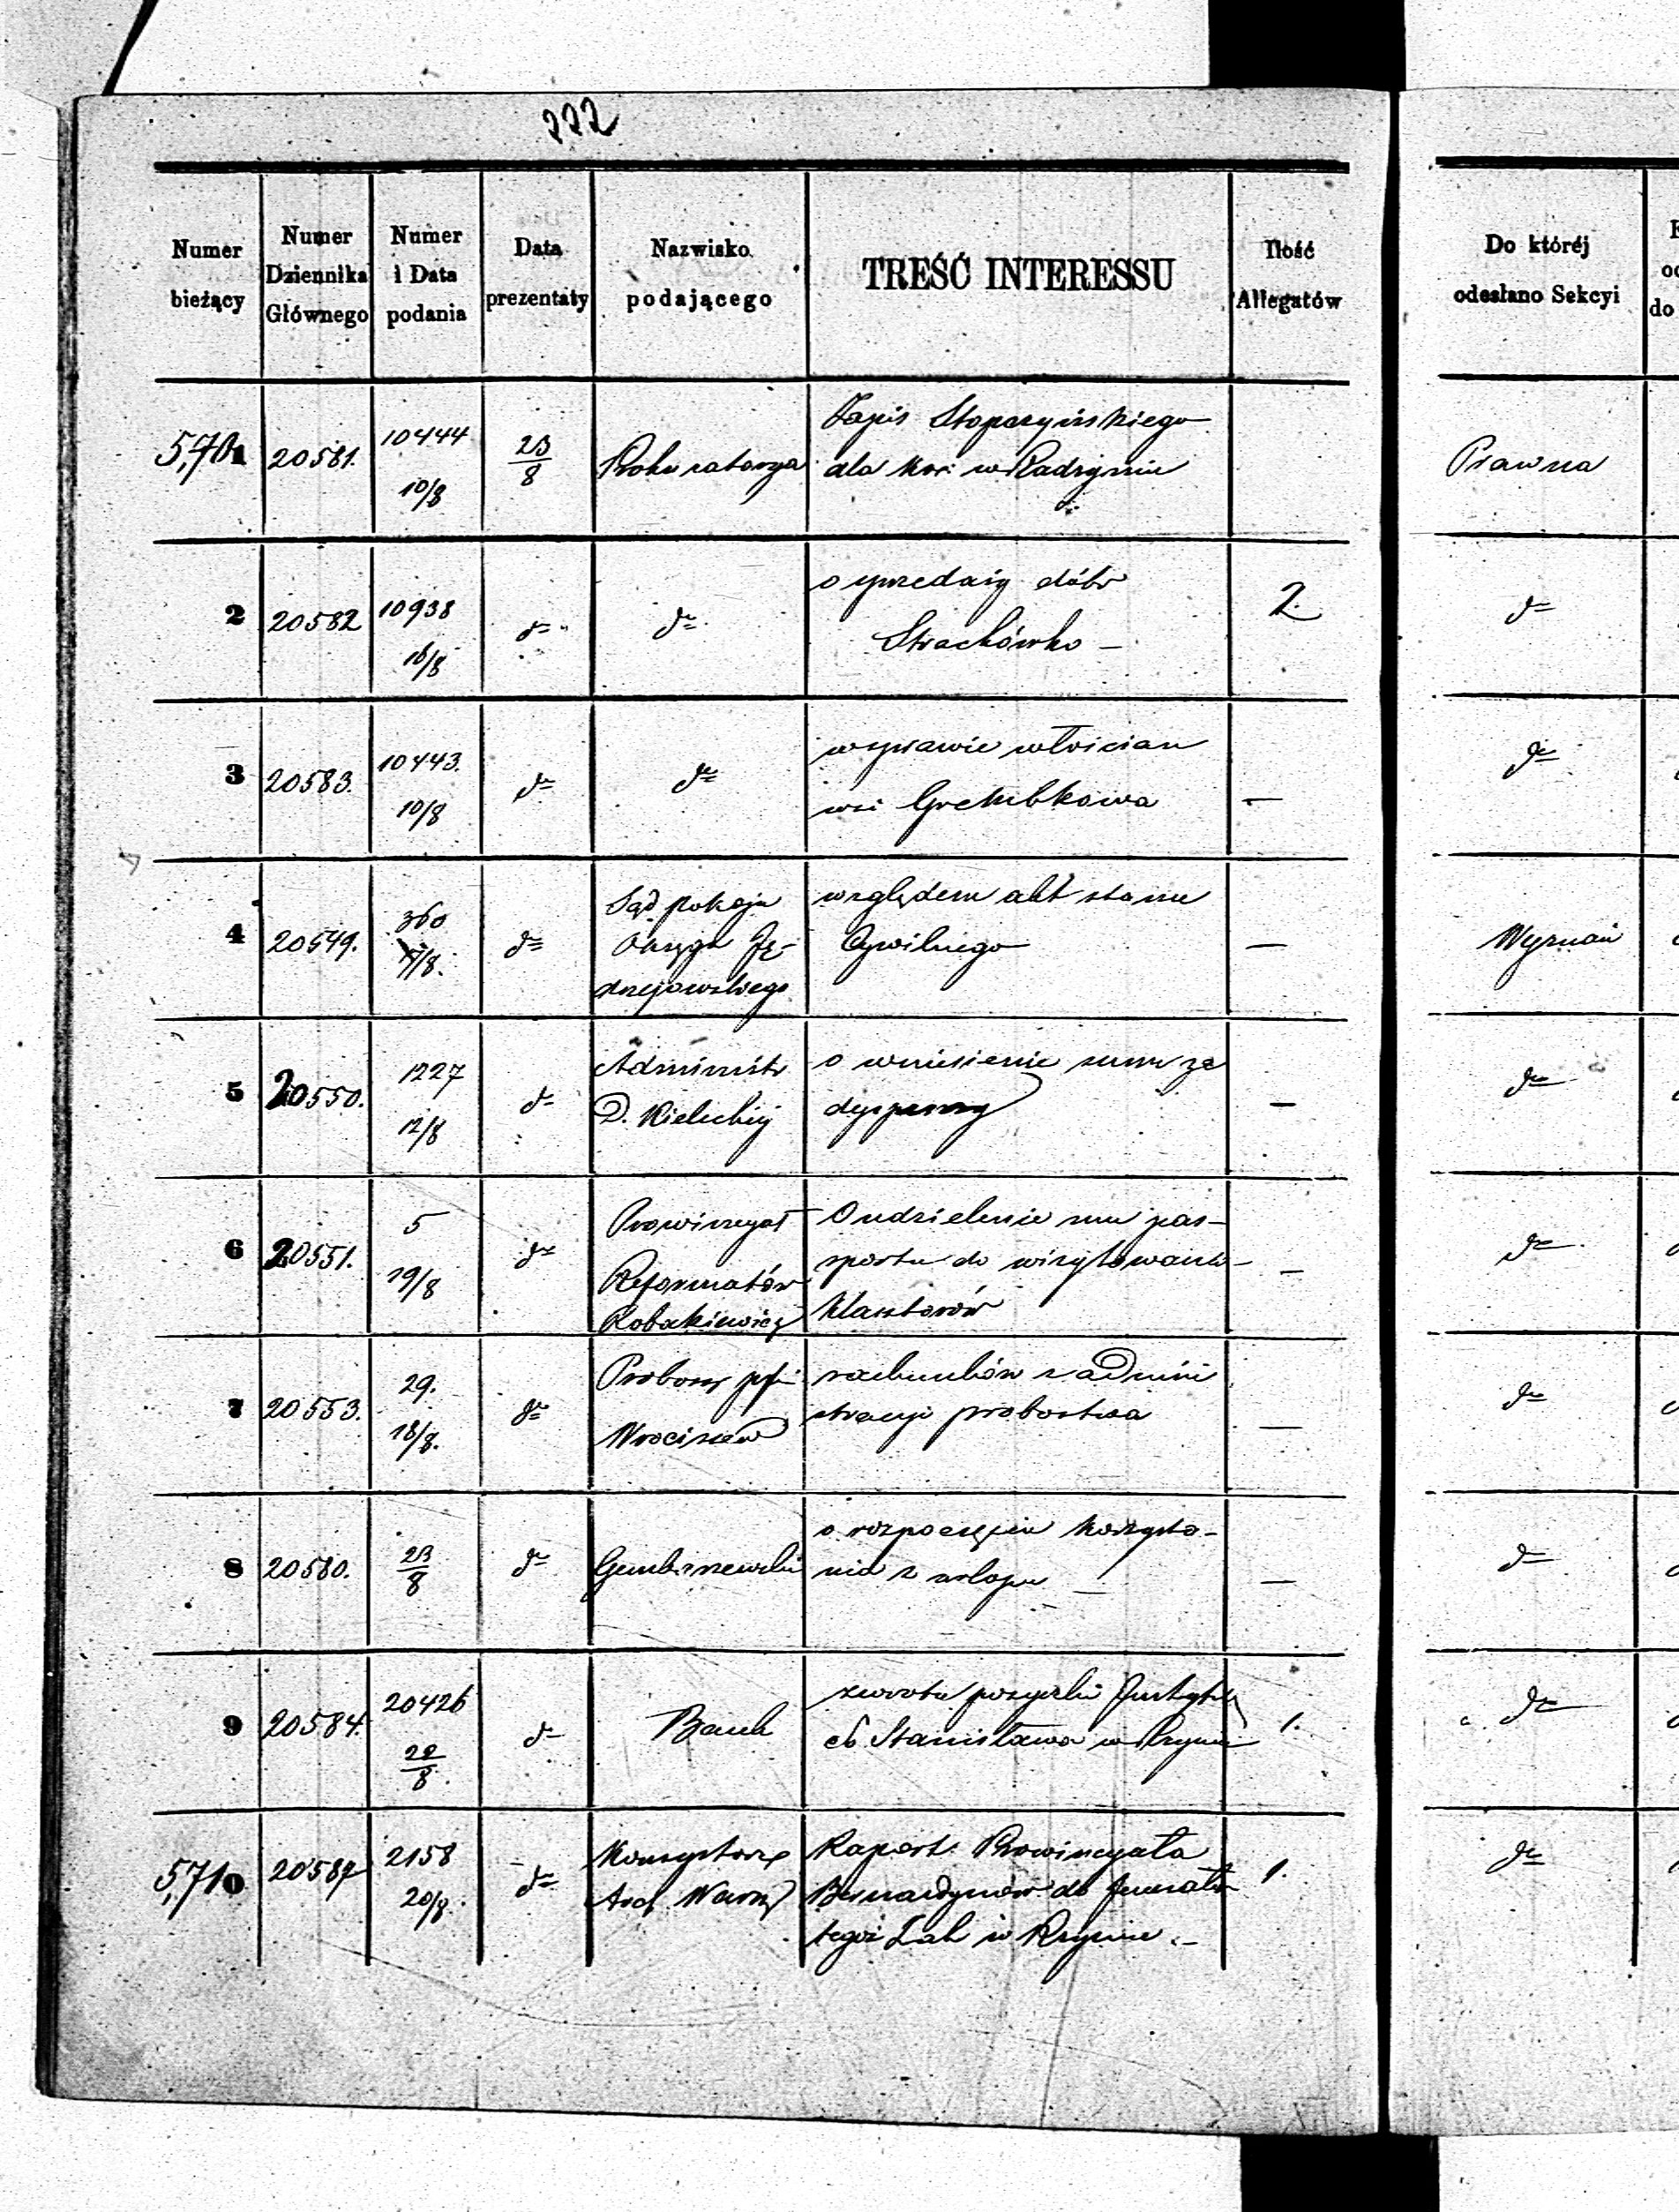 222
Numer bieżący
Numer Dziennika Głównego
Numer i Data podania
Data prezentaty
Nazwisko podającego
TREŚĆ INTERESSU
Ilość Allegatów
Do któréj odesłano Sekcyi
5,701 20581. 10444 10/8 23/8 Prokuratorya Zapis Stopczyńskiego Prawna
dla Koś: w Radzyminie
2 20582 10938 16/8 do do o sprzedaży dóbr 2. do
Strachówko –
3 20583. 10443. 10/8 do do w sprawie włościan do
wsi Grembkowa —
4 20549. 360 /8. do Sąd pokoju względem akt stanu Wyznań
Okręgu Ję- Cywilnego —
drzejowskiego
5 20550. 1227 12/8 do Administr o wniesienie summ za do
D. Kieleckiej dyspensy —
6 20551. 5 19/8 do Prowincyał O udzielenie mu pas- do
Reformatów sportu do wizytowania –
Robakiewicz Klasztorów
7 20553. 29. 18/8. do Probosz rachunków z admini do
Wrociszew stracyi probostwa —
8 20580. 23/8 do o rozpoczęciu korzysta- do
nia z urlopu — —
9 20584. 20426 22/8. do Bank zwrotu 1. do
Stanisława w Rzymie
5,710 20587 2158 20/8. do Konsystorz Raport Prowincyała 1. do
Arch Warsz Bernardynów do Jenerała
tegoż Zak w Rzymie. –